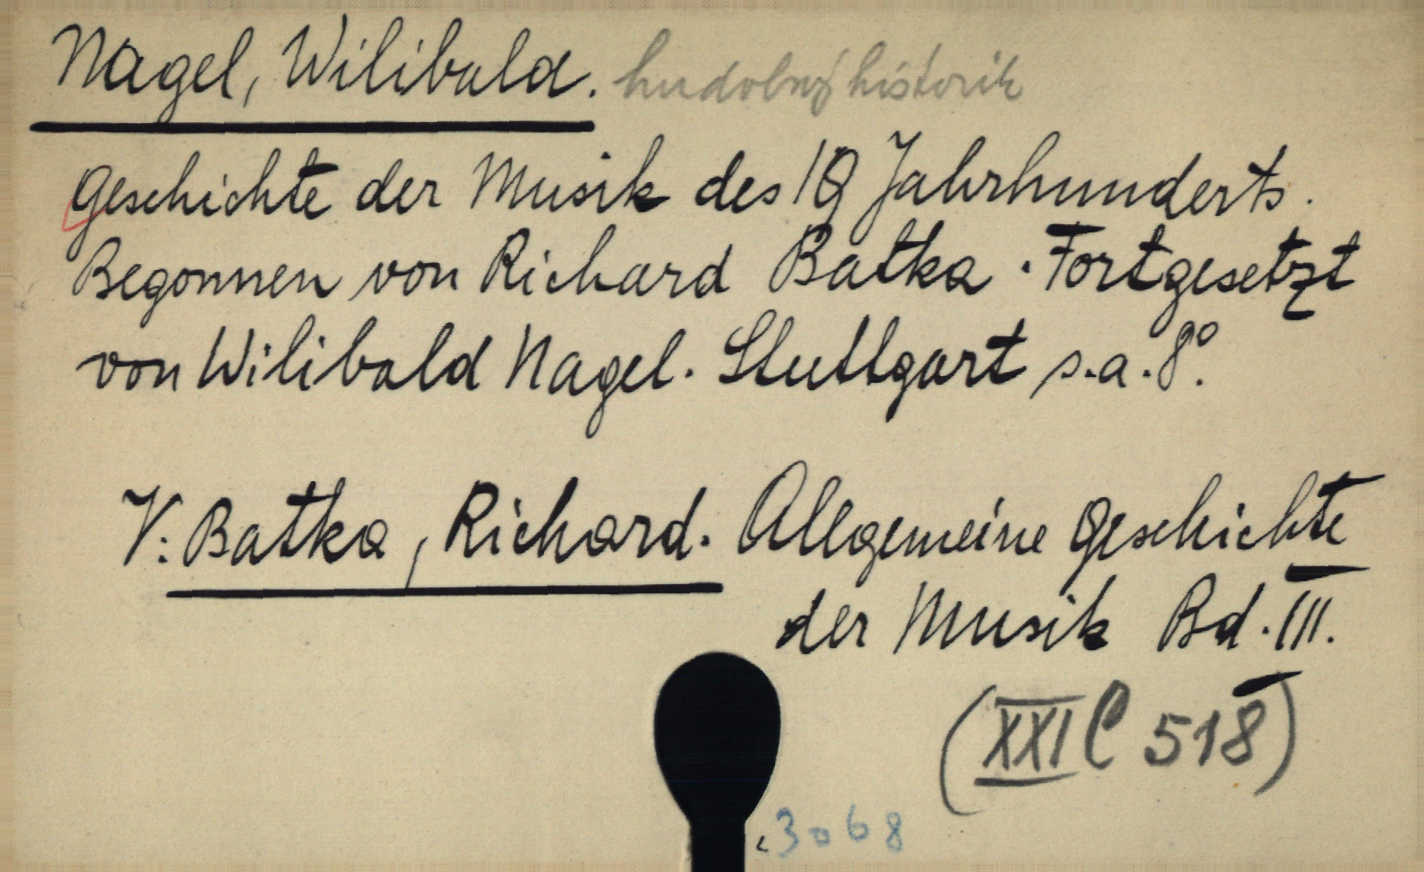 Nagel, Wilibald. hudobný historik
Geschichte der Musik des 19 Jahrhunderts.
Begonnen von Richard Batka. Fortgesetzt
von Wilibald Nagel. Stuttgart s.a. 8°.
V: Batka, Richard. Allgemeine Geschichte
der Musik Bd. III.
(XXI C 518)
3068